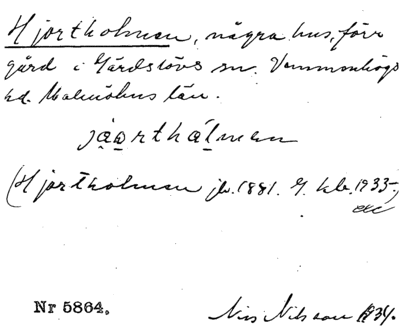 Hjortholmen, några hus, förr
gård i Gärdslövs sn. Vemmenhögs
hd. Malmöhus län.
(Hjortholmen jb. 1881. G. kb. 1933.)
Nr 5864.
Nils Nilsson 1934.